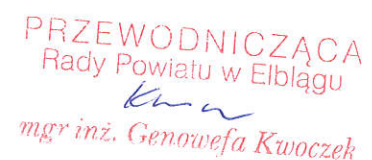 PRZEWODNICZĄCA
Rady Powiatu w Elblągu
mgr inż. Genowefa Kwoczek